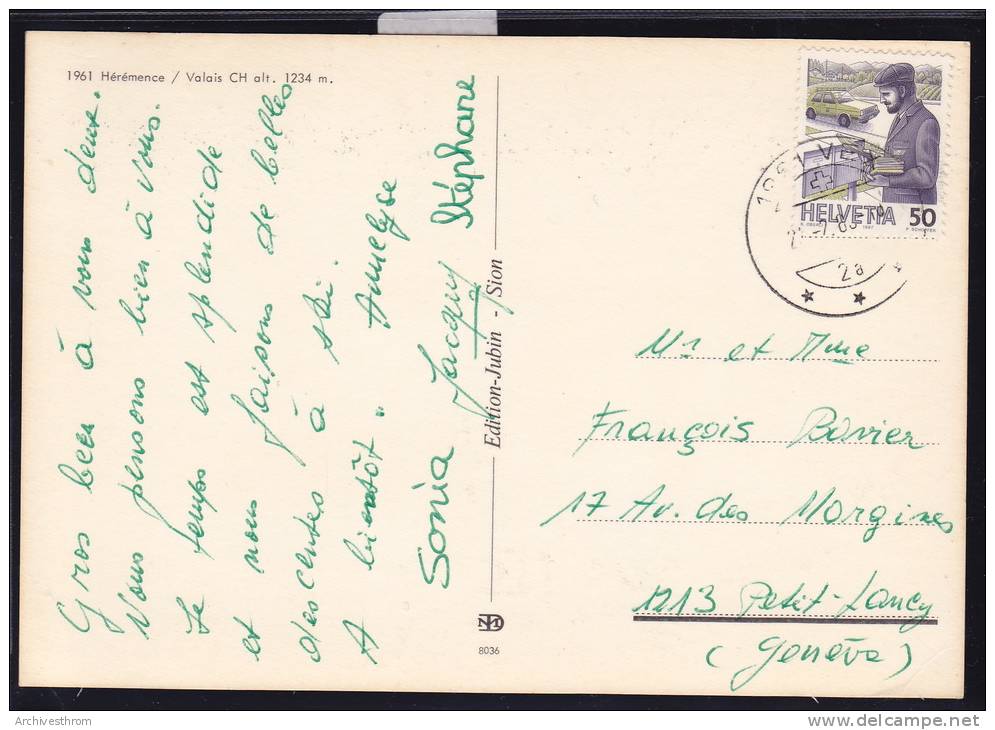 1961 Hérémence / Valais CH alt. 1234 m.
Gros becs à vous deux.
Nous pensons bien à vous.
Le temps est splendide
et nous faisons de belles
descentes à ski
A bientôt.
Annelyse
Sonia Jacquy Stéphane
Edition-Jubin - Sion
8036
HELVETIA 50
1987
2a
Mr et Mme
François Bovier
17 Av. des Morgines
1213 Petit-Lancy
(Genève)
Archivesthrom
delcampe.net